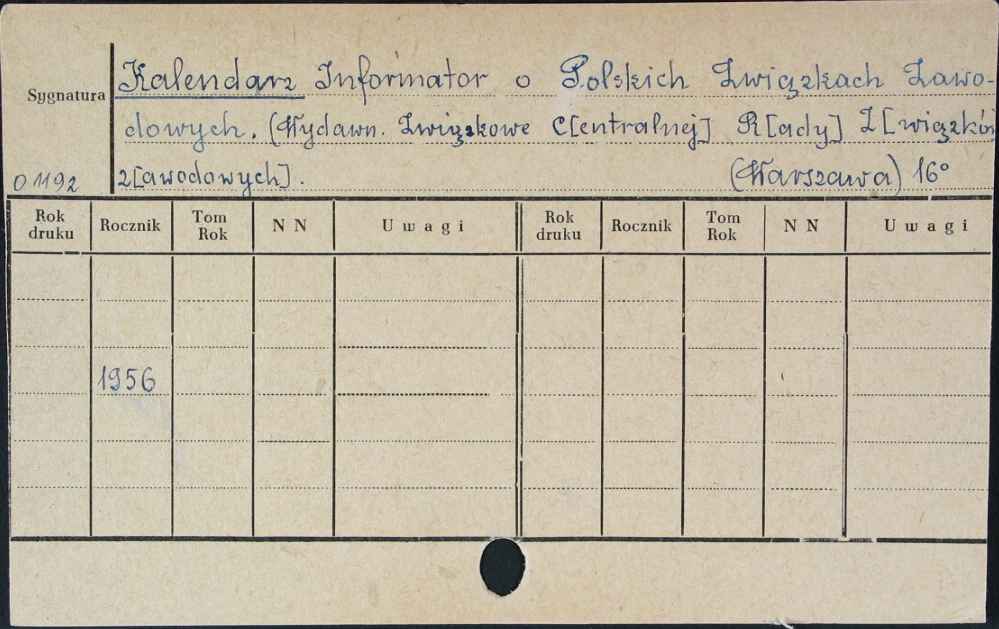 Sygnatura
Kalendarz Informator o Polskich Związkach Zawo-
dowych. (Wydawn. Związkowe C[entralnej] R[ady] Z[wiązków
O 1192 z[awodowych]. (Warszawa) 16°
Rok druku Rocznik Tom Rok N N Uwagi Rok druku Rocznik Tom Rok N N Uwagi
1956